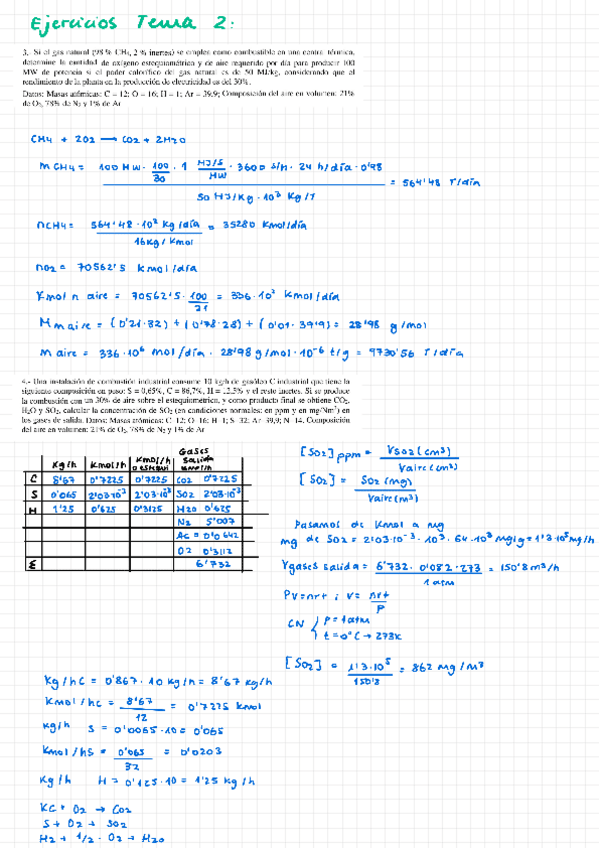 Ejercicios Tema 2:
3.- Si el gas natural (98 % CH4, 2 % inertes) se emplea como combustible en una central térmica,
determine la cantidad de oxígeno estequiométrica y de aire requerido por día para producir 100
MW de potencia si el poder calorífico del gas natural es de 50 MJ/kg, considerando que el
rendimiento de la planta en la producción de electricidad es del 30%.
Datos: Masas atómicas: C = 12; O = 16; H = 1; Ar = 39,9; Composición del aire en volumen: 21%
de O2, 78% de N2 y 1% de Ar
CH4 + 2O2 → CO2 + 2H2O
mCH4 = 100 MW · 100/30 · 1 MJ/s/MW · 3600 s/h · 24 h/día · 0'98 / 50 MJ/Kg · 10³ Kg/T = 564'48 T/día
nCH4 = 564'48 · 10³ Kg/día / 16Kg/Kmol = 35280 Kmol/día
nO2 = 70562'5 kmol/día
Kmol n aire = 70562'5 · 100/21 = 336·10³ Kmol/día
Mmaire = (0'21·32) + (0'78·28) + (0'01·39'9) = 28'98 g/mol
m aire = 336·10⁶ mol/día · 28'98 g/mol · 10⁻⁶ t/g = 9730'56 T/día
4.- Una instalación de combustión industrial consume 10 kg/h de gasóleo C industrial que tiene la
siguiente composición en peso: S = 0,65%, C = 86,7%, H = 12,5% y el resto inertes. Si se produce
la combustión con un 30% de aire sobre el estequiométrico, y como producto final se obtiene CO2,
H2O y SO2, calcular la concentración de SO2 (en condiciones normales: en ppm y en mg/Nm³) en
los gases de salida. Datos: Masas atómicas: C: 12; O: 16; H: 1; S: 32; Ar: 39,9; N: 14. Composición
del aire en volumen: 21% de O2, 78% de N2 y 1% de Ar
Kg/h Kmol/h Kmol/h O2 Gases salida
C 8'67 0'7225 0'7225 CO2 0'7225
S 0'065 2'03·10⁻³ 2'03·10⁻³ SO2 2'03·10⁻³
H 1'25 0'625 0'3125 H2O 0'625
N2 5'007
Ar = 0'0642
O2 0'3112
Σ 6'732
[SO2] ppm = VSO2 (cm³) / Vaire (m³)
[SO2] = SO2 (mg) / Vaire (m³)
Pasamos de Kmol a mg
mg de SO2 = 2'03·10⁻³ · 10³ · 64 · 10³ mg/g = 1'3·10⁵ mg/h
Vgases salida = 6'732 · 0'082 · 273 / 1 atm = 150'8 m³/h
PV=nrt ; V= nrt/P
CN { P= 1 atm
t = 0°C → 273K
[SO2] = 1'3·10⁵ / 150'8 = 862 mg/m³
Kg/h C = 0'867 · 10 Kg/h = 8'67 Kg/h
Kmol/hC = 8'67/12 = 0'7225 kmol
Kg/h S = 0'0065·10 = 0'065
Kmol/hS = 0'065/32 = 0'0203
Kg/h H = 0'125·10 = 1'25 Kg/h
O2 → CO2
S + O2 → SO2
H2 + 1/2 · O2 → H2O